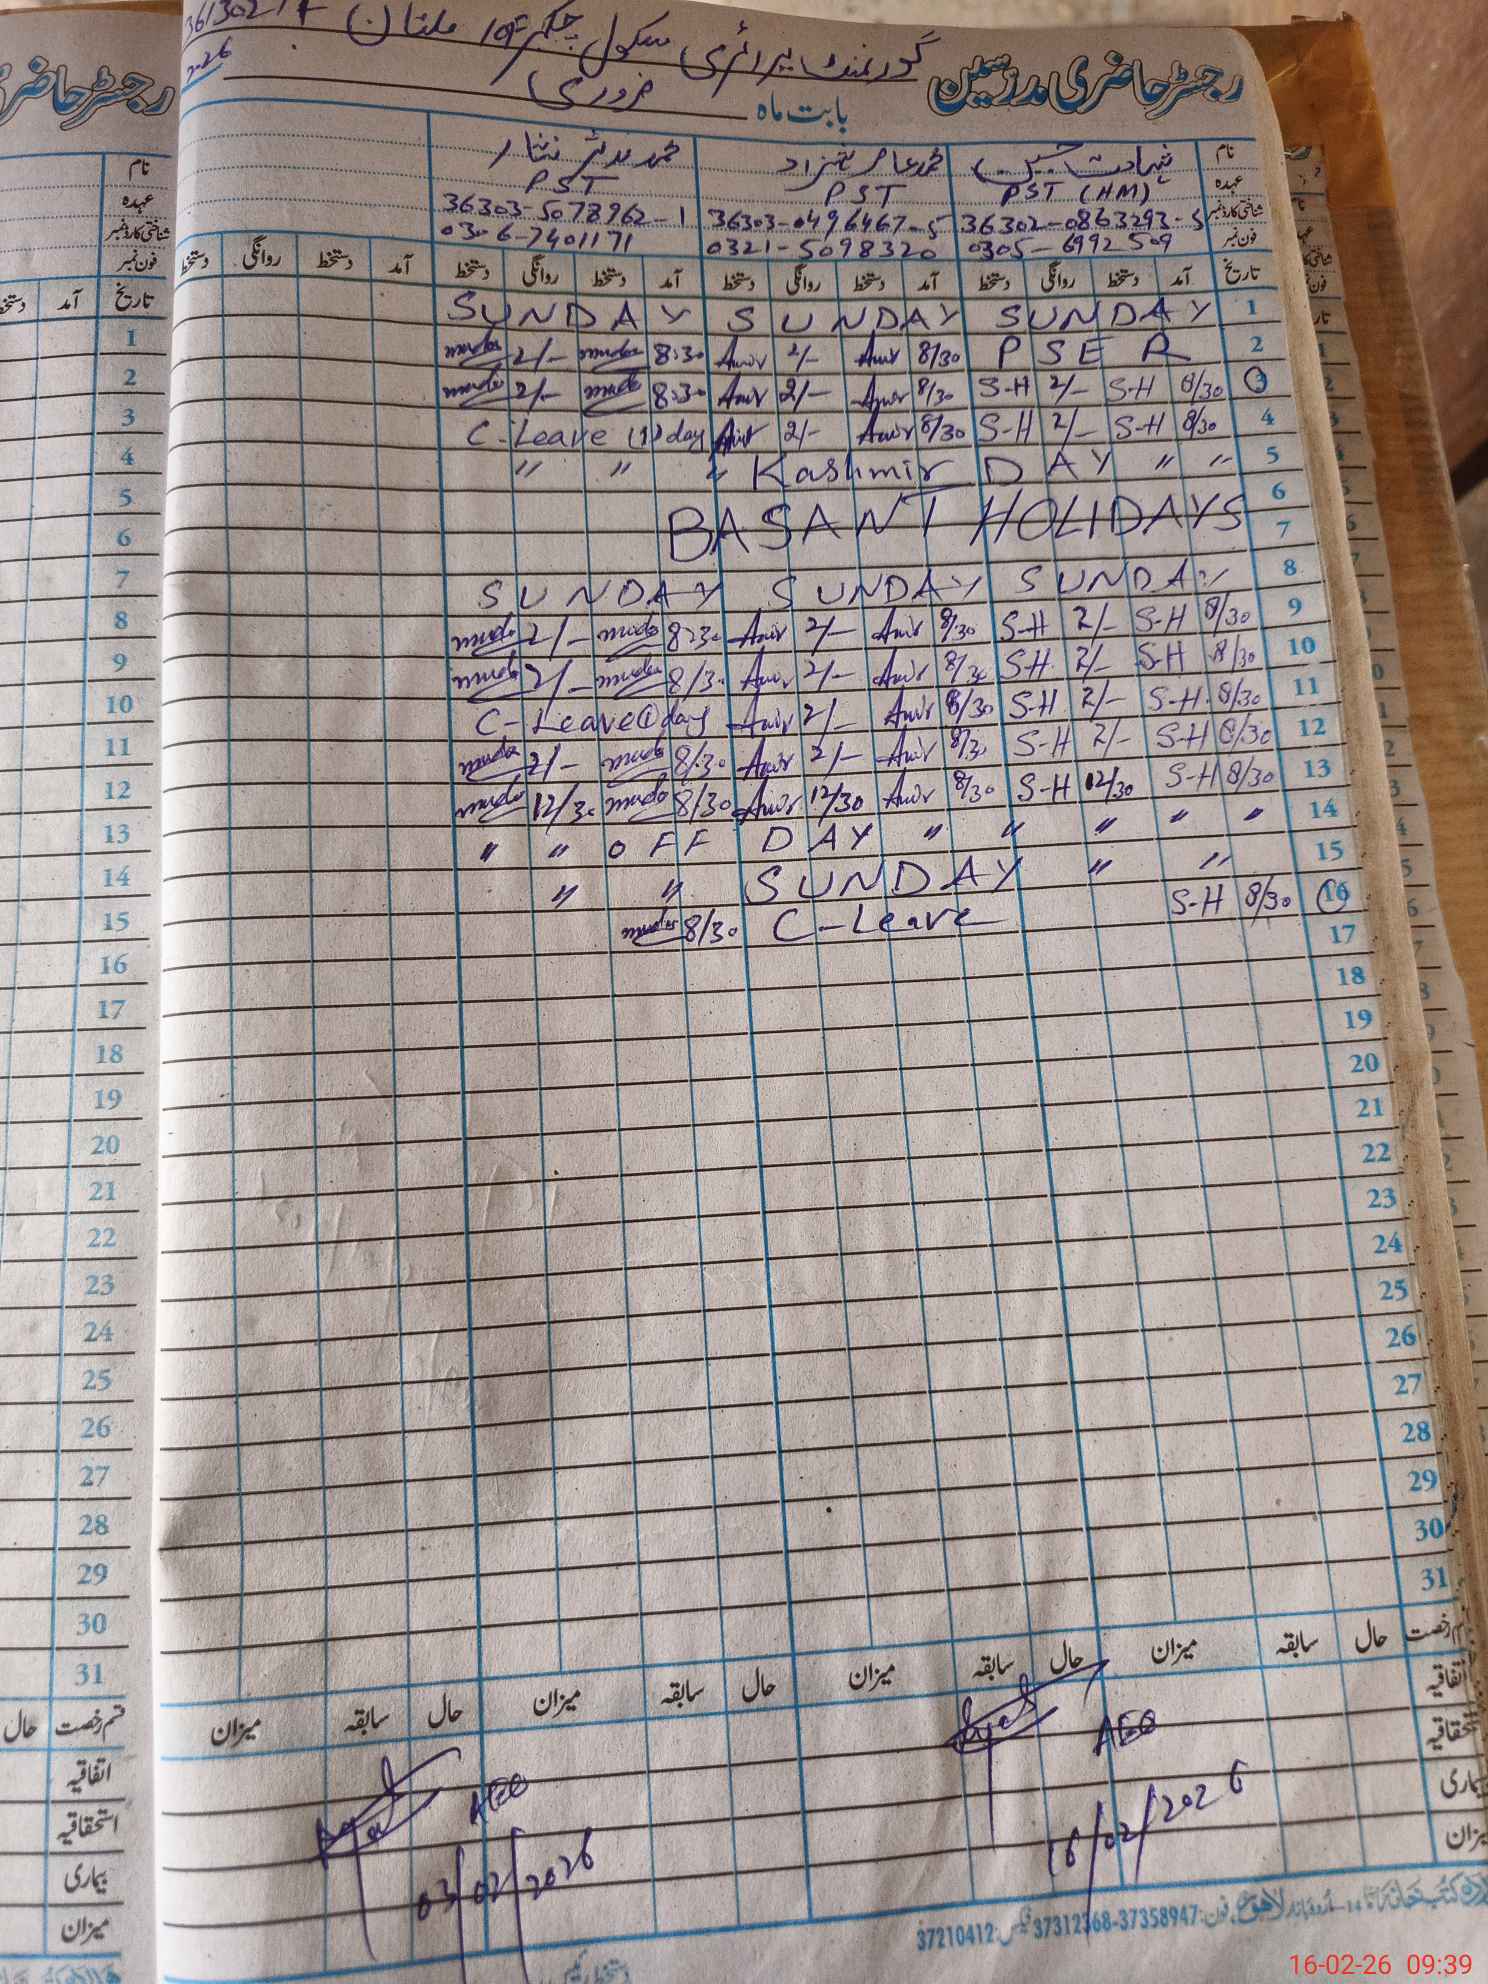 3613021
گورنمنٹ پرائمری سکول چک نمبر ملتان
2026
رجسٹر حاضری مدرسین
بابت ماہ فروری
نام شہادت حسین محمد عامر شہزاد محمد مدثر نثار
عہدہ PST (HM) PST PST
شناختی کارڈ نمبر 36302-0863293-5 36303-0496467-5 36303-5078962-1
فون نمبر 0305-6992509 0321-5098320 0306-7401171
تاریخ آمد دستخط روانگی دستخط آمد دستخط روانگی دستخط آمد دستخط روانگی دستخط آمد دستخط روانگی دستخط
1 SUNDAY SUNDAY SUNDAY
2 PSER 8/30 Amir 2/- Amir 8:30 2/-
3 8/30 S-H 2/- S-H 8/30 Amir 2/- Amir 8:30 2/-
4 8/30 S-H 2/- S-H 8/30 Amir 2/- Amir C-Leave (1) day
5 " " Kashmir DAY " " "
6
7 BASANT HOLIDAYS
8 SUNDAY SUNDAY SUNDAY
9 8/30 S-H 2/- S-H 8/30 Amir 2/- Amir 8:30 2/-
10 8/30 S-H 2/- S-H 8/30 Amir 2/- Amir 8/30 2/-
11 8/30 S-H 2/- S-H 8/30 Amir 2/- Amir C-Leave (1) day
12 8/30 S-H 2/- S-H 8/30 Amir 2/- Amir 8/30 2/-
13 8/30 S-H 12/30 S-H 8/30 Amir 12/30 Amir 8/30 12/30
14 " " OFF DAY " " " " "
15 " " SUNDAY " "
16 8/30 S-H C-Leave 8/30
17
18
19
20
21
22
23
24
25
26
27
28
29
30
31
قسم رخصت حال سابقہ میزان حال سابقہ میزان حال سابقہ میزان حال سابقہ میزان
اتفاقیہ
استحقاقیہ
بیماری
میزان
AEO
16/02/2026
AEO
03/02/2026
لاہور فون: 37312368-37358947 فیکس: 37210412
رجسٹر حاضری
نام
عہدہ
شناختی کارڈ نمبر
فون نمبر
تاریخ آمد دستخط
1
2
3
4
5
6
7
8
9
10
11
12
13
14
15
16
17
18
19
20
21
22
23
24
25
26
27
28
29
30
31
قسم رخصت حال
اتفاقیہ
استحقاقیہ
بیماری
میزان
16-02-26 09:39